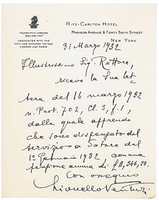 RITZ-CARLTON HOTEL
MADISON AVENUE & FORTY SIXTH STREET
NEW YORK
31 Marzo 1932
Illustrissimo Sig. Rettore,
ricevo la Sua let-
tera del 16 marzo 1932
n. Prot. 702, Cl. 3, f. 1,
dalla quale apprendo
che sono dispensato dal
servizio a datare dal
1º Gennaio 1932, con una
pensione annua di
Con ossequio
Lionello Venturi